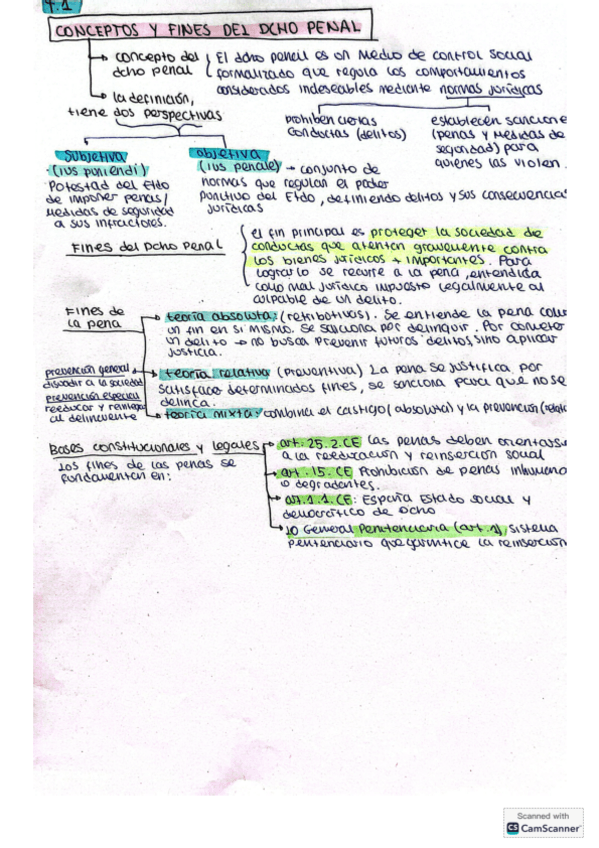 T.1
CONCEPTOS Y FINES DEL DCHO PENAL
concepto del dcho penal
El dcho penal es un medio de control social
formalizado que regula los comportamientos
considerados indeseables mediante normas jurídicas
prohiben ciertas
conductas (delitos)
establecen sancione
(penas y medidas de
seguridad) para
quienes las violen.
la definición,
tiene dos perspectivas
Subjetiva
(ius puniendi)
Potestad del Etdo
de imponer penas/
medidas de seguridad
a sus infractores.
objetiva
(ius penale) → conjunto de
normas que regulan el poder
punitivo del Etdo, definiendo delitos y sus consecuencia
jurídicas
Fines del Dcho Penal
el fin principal es proteger la sociedad de
conductas que atenten gravemente contra
los bienes jurídicos + importantes. Para
lograrlo se recurre a la pena, entendida
como mal jurídico impuesto legalmente al
culpable de un delito.
Fines de
la pena
teoría absoluta: (retributivos). Se entiende la pena com
un fin en si mismo. Se sanciona por delinquir. Por cometer
un delito → no busca prevenir futuros delitos, sino aplicar
justicia.
prevención general
disuadir a la sociedad
prevención especial
reeducar y reintegrar
al delincuente
teoría relativa (preventiva) La pena se justifica por
satisfacer determinados fines, se sanciona para que no se
delinca.
teoría mixta: combina el castigo (absoluta) y la prevención (relati
Bases constitucionales y legales
Los fines de las penas se
fundamentan en:
art. 25.2.CE las penas deben orientars
a la reeducación y reinserción social
art. 15. CE Prohibición de penas inhumano
o degradantes.
art.1.1.CE: España Estado social y
democrático de Dcho
LO General Penitenciaria (art.1) sistema
penitenciario que garantice la reinserción
Scanned with
CS CamScanner